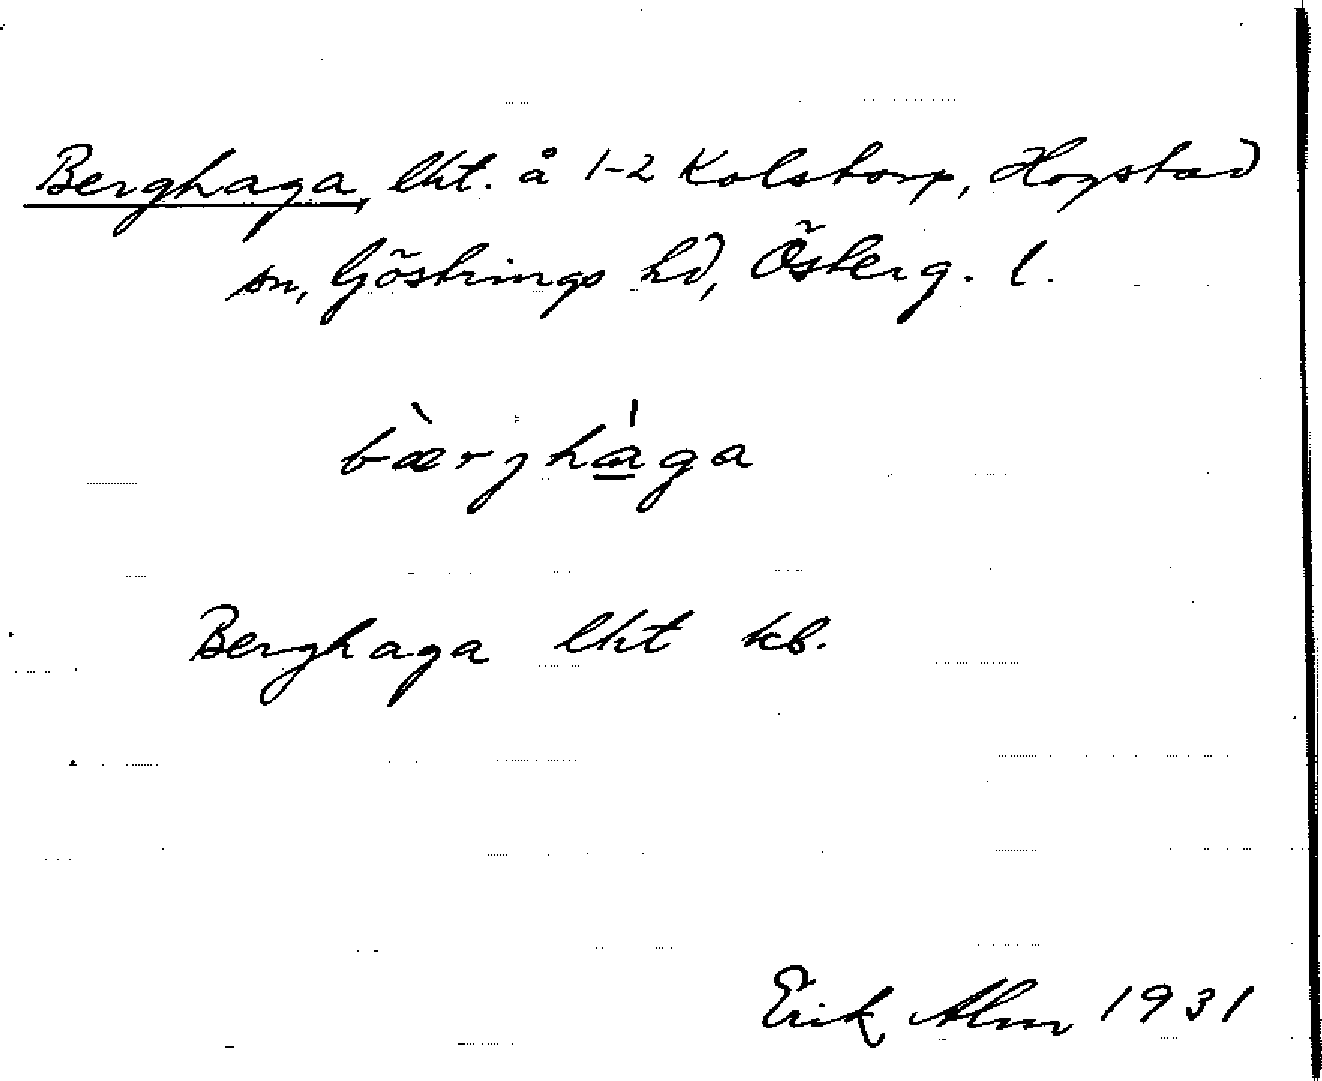 Berghaga, lht. å 1-2 Kolstorp, Hogstad
sn, Göstrings hd, Österg. l.
bæ̀rjha̲̍ga
Berghaga lht kb.
Erik Alm 1931